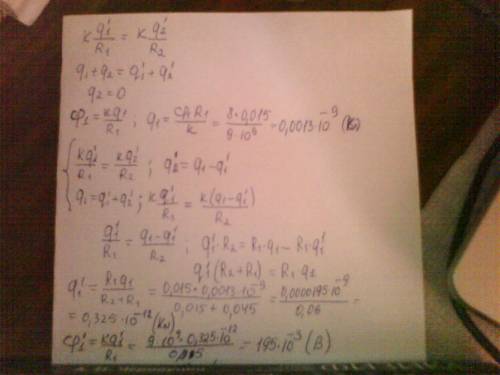 k q₁'/R₁ = k q₂'/R₂
q₁ + q₂ = q₁' + q₂'
q₂ = 0
φ₁ = kq₁/R₁ ; q₁ = φ₁R₁/k = 8·0,015/9·10⁹ = 0,0013·10⁻⁹ (Кл)
{ kq₁'/R₁ = kq₂'/R₂ ; q₂' = q₁ - q₁'
q₁ = q₁' + q₂' ; k q₁'/R₁ = k(q₁-q₁')/R₂
q₁'/R₁ = q₁-q₁'/R₂ ; q₁'·R₂ = R₁·q₁ - R₁·q₁'
q₁'(R₂+R₁) = R₁·q₁
q₁' = R₁q₁/R₂+R₁ = 0,015·0,0013·10⁻⁹/0,015+0,045 = 0,0000195·10⁻⁹/0,06 =
= 0,325·10⁻¹² (Кл)
φ₁' = kq₁'/R₁ = 9·10⁹·0,325·10⁻¹²/0,015 = 195·10⁻³ (В)